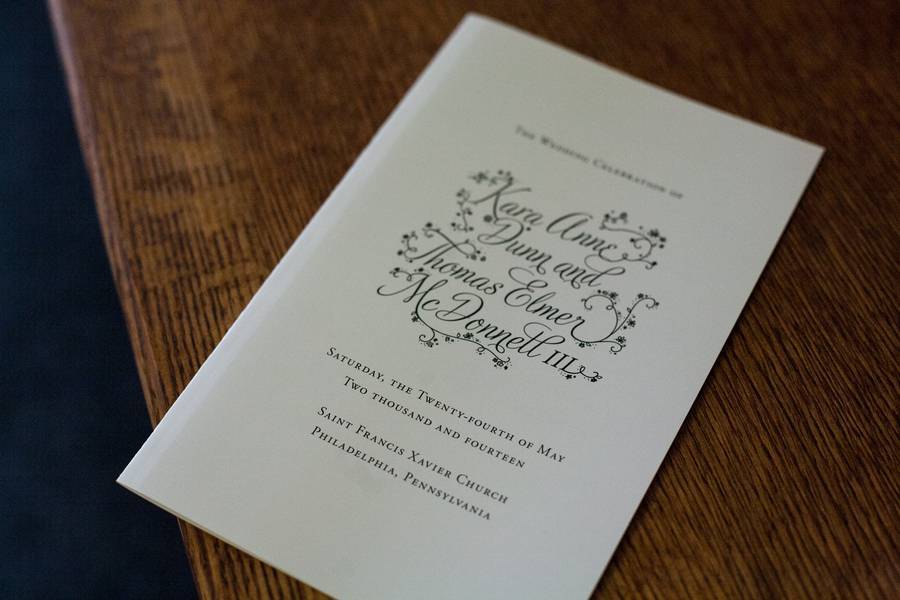 The Wedding Celebration of
Kara Anne
Dunn and
Thomas Elmer
McDonnell III
Saturday, the Twenty-fourth of May
Two thousand and fourteen
Saint Francis Xavier Church
Philadelphia, Pennsylvania